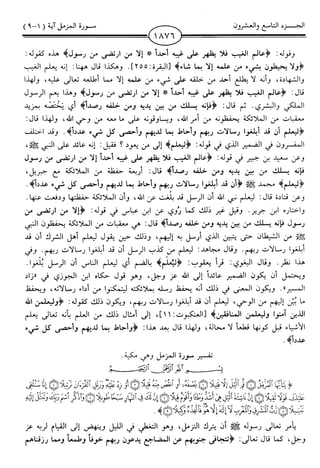 الجـــزء التاسع والعشرون
سورة المزمل آية (١-٩)
١٨٧٦
وقوله: ﴿عالم الغيب فلا يظهر على غيبه أحدا * إلا من ارتضى من رسول﴾ هذه كقوله:
﴿ولا يحيطون بشيء من علمه إلا بما شاء﴾ [البقرة: ٢٥٥]. وهكذا قال ههنا: إنه يعلم الغيب
والشهادة، وأنه لا يطلع أحد من خلقه على شيء من علمه إلا مما أطلعه تعالى عليه، ولهذا
قال: ﴿عالم الغيب فلا يظهر على غيبه أحداً * إلا من ارتضى من رسول﴾ وهذا يعم الرسول
الملكي والبشري. ثم قال: ﴿فإنه يسلك من بين يديه ومن خلفه رصداً﴾ أي يختصه بمزيد
معقبات من الملائكة يحفظونه من أمر الله، ويساوقونه على ما معه من وحي الله، ولهذا قال:
﴿ليعلم أن قد أبلغوا رسالات ربهم وأحاط بما لديهم وأحصى كل شيء عدداً﴾. وقد اختلف
المفسرون في الضمير الذي في قوله: ﴿ليعلم﴾ إلى من يعود؟ فقيل: إنه عائد على النبي ﷺ،
وعن سعيد بن جبير في قوله: ﴿عالم الغيب فلا يظهر على غيبه أحداً إلا من ارتضى من رسول
فإنه يسلك من بين يديه ومن خلفه رصداً﴾ قال: أربعة حفظة من الملائكة مع جبريل،
﴿ليعلم﴾ محمد ﷺ ﴿أن قد أبلغوا رسالات ربهم وأحاط بما لديهم وأحصى كل شيء عدداً﴾.
وعن قتادة قال: ليعلم نبي الله أن الرسل قد بلغت عن الله، وأن الملائكة حفظتها ودفعت عنها.
واختاره ابن جرير. وقيل غير ذلك كما روي عن ابن عباس في قوله: ﴿إلا من ارتضى من
رسول فإنه يسلك من بين يديه ومن خلفه رصداً﴾ قال: هي معقبات من الملائكة يحفظون النبي
ﷺ من الشيطان حتى يتبين الذي أرسل به إليهم، وذلك حين يقول ليعلم أهل الشرك أن قد
أبلغوا رسالات ربهم. وقال مجاهد: ليعلم من كذب الرسل أن قد أبلغوا رسالات ربهم. وفي
هذا نظر. وقال البغوي: قرأ يعقوب: ﴿ليُعلَم﴾ بالضم أي ليعلم الناس أن الرسل بُلّغوا.
ويحتمل أن يكون الضمير عائداً إلى الله عز وجل، وهو قول حكاه ابن الجوزي في «زاد
المسير». ويكون المعنى في ذلك أنه يحفظ رسله بملائكته ليتمكنوا من أداء رسالاته، ويحفظ
ما بيّن إليهم من الوحي، ليعلم أن قد أبلغوا رسالات ربهم، ويكون ذلك كقوله: ﴿وليعلمن الله
الذين آمنوا وليعلمن المنافقين﴾ [العنكبوت: ١١]، إلى أمثال ذلك من العلم بأنه تعالى يعلم
الأشياء قبل كونها قطعاً لا محالة، ولهذا قال بعد هذا: ﴿وأحاط بما لديهم وأحصى كل شيء
عدداً﴾.
تفسير سورة المزمل وهي مكية.
بسم الله الرحمن الرحيم
يأمر تعالى رسوله ﷺ أن يترك التزمل، وهو التغطي في الليل وينهض إلى القيام لربه عز
وجل، كما قال تعالى: ﴿تتجافى جنوبهم عن المضاجع يدعون ربهم خوفاً وطمعاً ومما رزقناهم